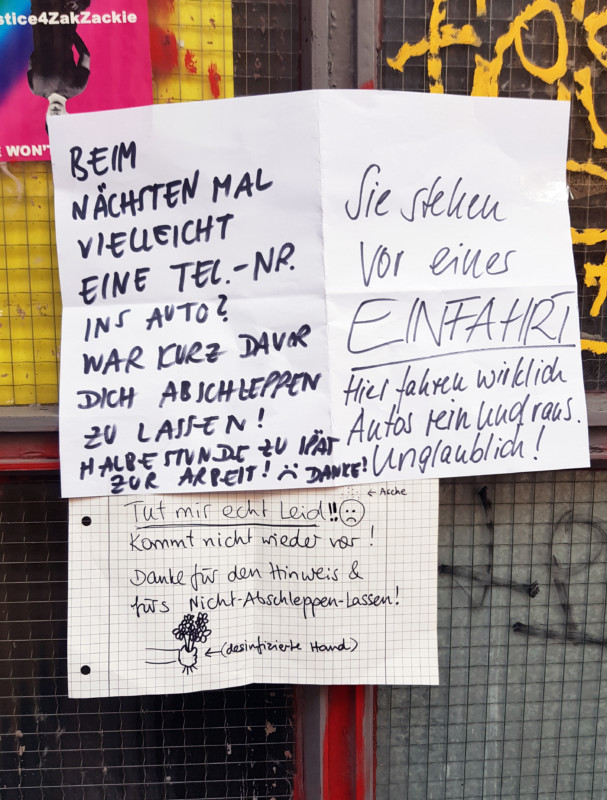 stice4ZakZackie
WON'T
BEIM
NÄCHSTEN MAL
VIELLEICHT
EINE TEL.-NR.
INS AUTO?
WAR KURZ DAVOR
DICH ABSCHLEPPEN
ZU LASSEN!
HALBE STUNDE ZU SPÄT
ZUR ARBEIT! ☹ DANKE!
Sie stehen
vor einer
EINFAHRT
Hier fahren wirklich
Autos rein und raus.
Unglaublich!
← Asche
Tut mir echt Leid!! ☹
Kommt nicht wieder vor!
Danke für den Hinweis &
fürs Nicht-Abschleppen-Lassen!
← (desinfizierte Hand)